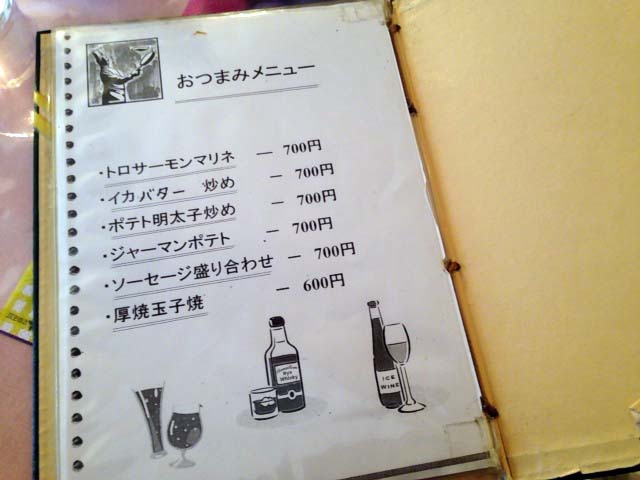 おつまみメニュー
・トロサーモンマリネ — 700円
・イカバター 炒め — 700円
・ポテト明太子炒め — 700円
・ジャーマンポテト — 700円
・ソーセージ盛り合わせ — 700円
・厚焼玉子焼 — 600円
Rye
Whisky
ICE
WINE